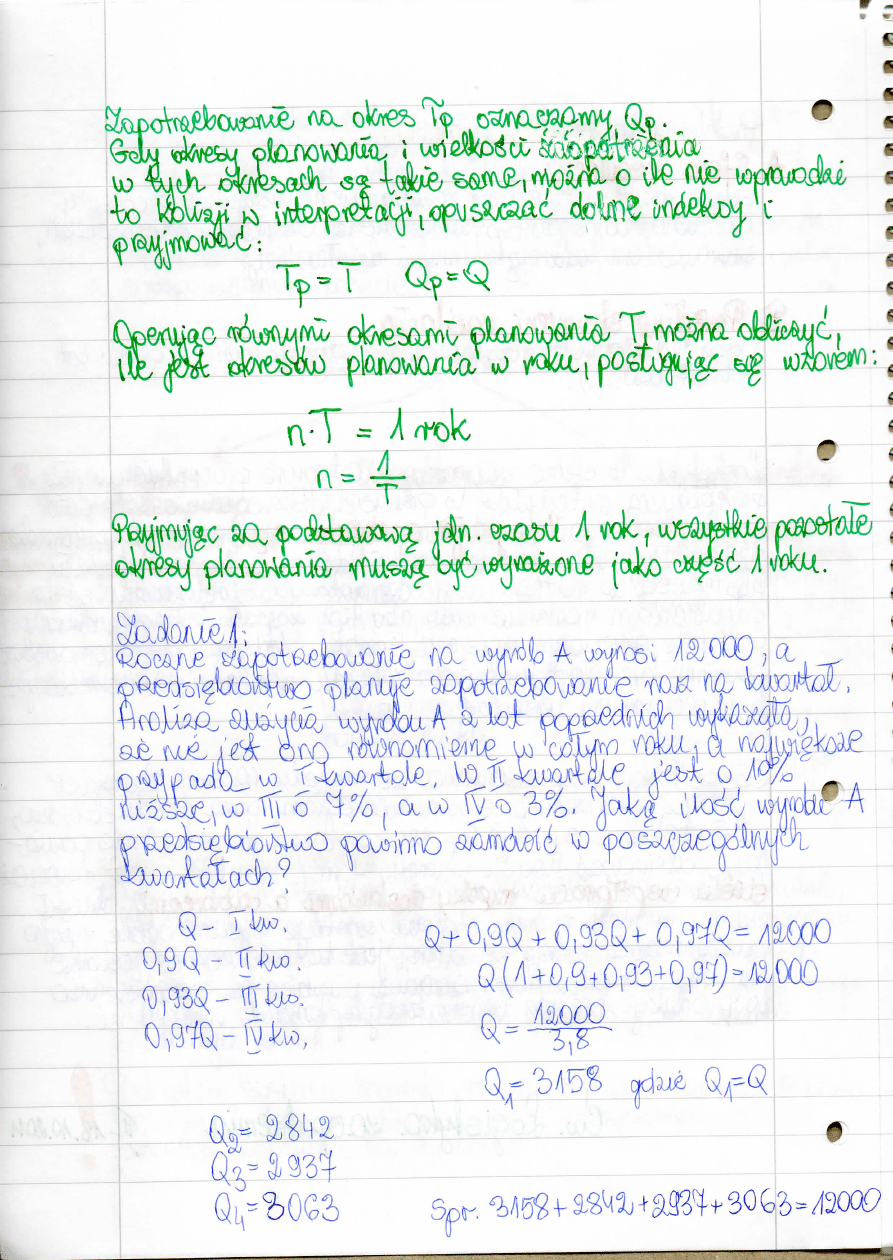 Zapotrzebowanie na okres Tp oznaczamy Qp.
Gdy okresy planowania i wielkości zaopatrzenia
w tych okresach są takie same, można o ile nie wprowadzi
to kolizji w interpretacji, opuszczać dolne indeksy i
przyjmować:
Tp = T Qp = Q
Operując równymi okresami planowania T, można obliczyć,
ile jest okresów planowania w roku, posługując się wzorem:
n·T = 1 rok
n = 1/T
Przyjmując za podstawową jdn. czasu 1 rok, wszystkie pozostałe
okresy planowania muszą być wyrażone jako część 1 roku.
Zadanie 1:
Roczne zapotrzebowanie na wyrób A wynosi 12 000, a
przedsiębiorstwo planuje zapotrzebowanie raz na kwartał.
Analiza zużycia wyrobu A z lat poprzednich wykazała,
że nie jest ono równomierne w całym roku, a największe
przypada w I kwartale. W II kwartale jest o 10%
niższe, w III o 7%, a w IV o 3%. Jaką ilość wyrobu A
przedsiębiorstwo powinno zamówić w poszczególnych
kwartałach?
Q - I kw.
0,9Q - II kw.
0,93Q - III kw.
0,97Q - IV kw.
Q + 0,9Q + 0,93Q + 0,97Q = 12000
Q(1+0,9+0,93+0,97) = 12000
Q = 12000/3,8
Q1 = 3158 gdzie Q1 = Q
Q2 = 2842
Q3 = 2937
Q4 = 3063
Spr. 3158 + 2842 + 2937 + 3063 = 12000